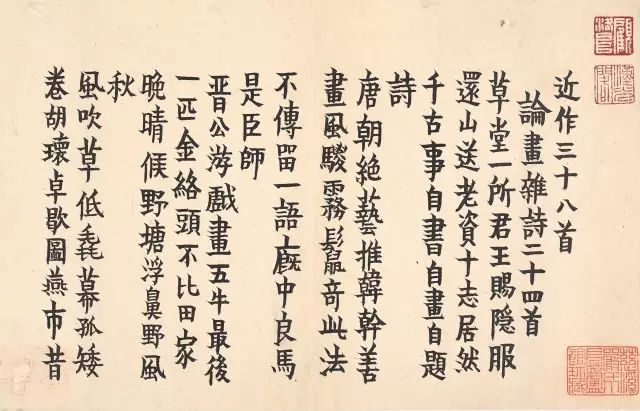 近作三十八首
論畫雜詩二十四首
草堂一所君王賜隱服
還山送老資十志居然
千古事自書自畫自題
詩
唐朝絕藝推韓幹善
畫風騣霧鬣奇此法
不傳留一語廄中良馬
是臣師
晉公游戲畫五牛最後
一匹金絡頭不比田家
晚晴候野塘浮鼻野風
秋
風吹草低毳幕孤矮
卷胡瓌卓歇圖燕市昔